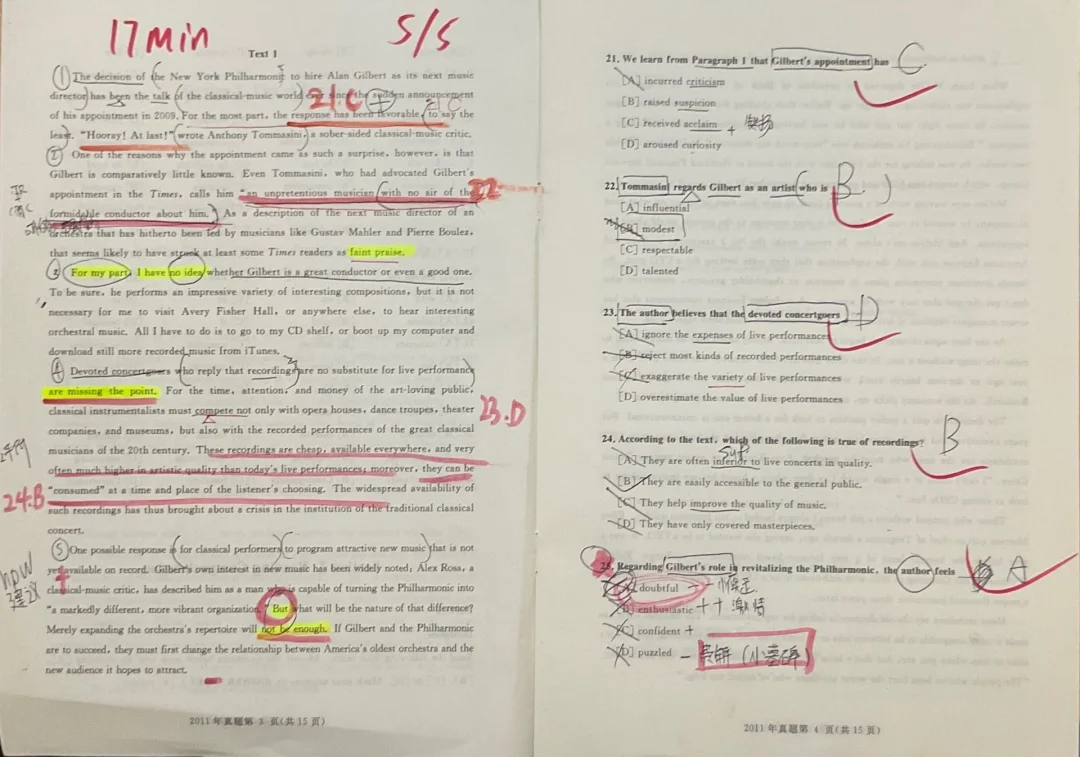 17min
5/5
Text 1
① The decision of the New York Philharmonic to hire Alan Gilbert as its next music
director has been the talk of the classical-music world ever since the sudden announcement
of his appointment in 2009. For the most part, the response has been favorable, to say the
least. "Hooray! At last!" wrote Anthony Tommasini, a sober-sided classical-music critic.
21C +
② One of the reasons why the appointment came as such a surprise, however, is that
Gilbert is comparatively little known. Even Tommasini, who had advocated Gilbert's
appointment in the Times, calls him "an unpretentious musician with no air of the
22
formidable conductor about him." As a description of the next music director of an
orchestra that has hitherto been led by musicians like Gustav Mahler and Pierre Boulez,
that seems likely to have struck at least some Times readers as faint praise.
③ For my part, I have no idea whether Gilbert is a great conductor or even a good one.
To be sure, he performs an impressive variety of interesting compositions, but it is not
necessary for me to visit Avery Fisher Hall, or anywhere else, to hear interesting
orchestral music. All I have to do is to go to my CD shelf, or boot up my computer and
download still more recorded music from iTunes.
④ Devoted concertgoers who reply that recordings are no substitute for live performance
are missing the point. For the time, attention, and money of the art-loving public,
classical instrumentalists must compete not only with opera houses, dance troupes, theater
23.D
companies, and museums, but also with the recorded performances of the great classical
musicians of the 20th century. These recordings are cheap, available everywhere, and very
often much higher in artistic quality than today's live performances; moreover, they can be
24.B
"consumed" at a time and place of the listener's choosing. The widespread availability of
such recordings has thus brought about a crisis in the institution of the traditional classical
concert.
⑤ One possible response is for classical performers to program attractive new music that is not
yet available on record. Gilbert's own interest in new music has been widely noted: Alex Ross, a
how
建议
classical-music critic, has described him as a man who is capable of turning the Philharmonic into
"a markedly different, more vibrant organization." But what will be the nature of that difference?
Merely expanding the orchestra's repertoire will not be enough. If Gilbert and the Philharmonic
are to succeed, they must first change the relationship between America's oldest orchestra and the
new audience it hopes to attract.
2011 年真题 3 页(共 15 页)
21. We learn from Paragraph 1 that Gilbert's appointment has C
[A] incurred criticism
[B] raised suspicion
[C] received acclaim +
[D] aroused curiosity
22. Tommasini regards Gilbert as an artist who is B
[A] influential
[B] modest
[C] respectable
[D] talented
23. The author believes that the devoted concertgoers D
[A] ignore the expenses of live performances
[B] reject most kinds of recorded performances
[C] exaggerate the variety of live performances
[D] overestimate the value of live performances
24. According to the text, which of the following is true of recordings? B
sup
[A] They are often inferior to live concerts in quality.
[B] They are easily accessible to the general public.
[C] They help improve the quality of music.
[D] They have only covered masterpieces.
25. Regarding Gilbert's role in revitalizing the Philharmonic, the author feels A
[A] doubtful → 怀疑
[B] enthusiastic ++ 激情
[C] confident +
[D] puzzled –
2011 年真题 4 页(共 15 页)